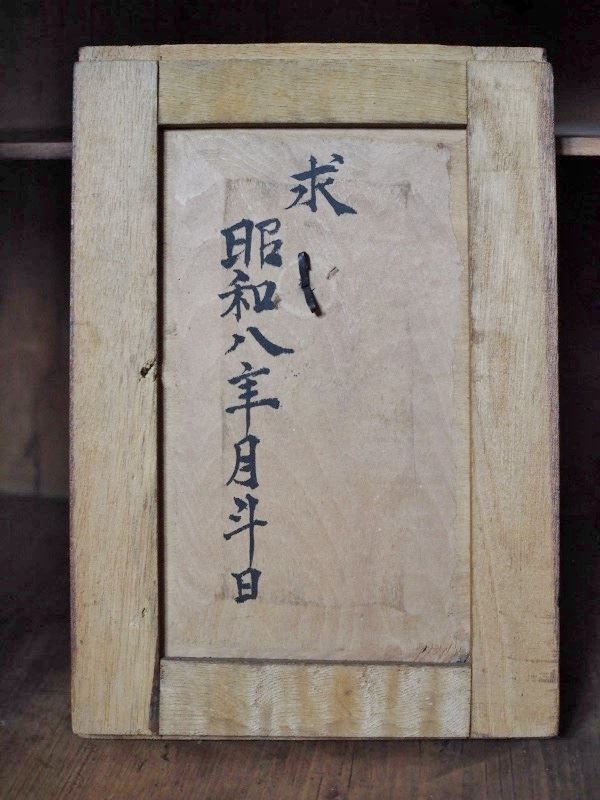 求
昭和八年月斗日